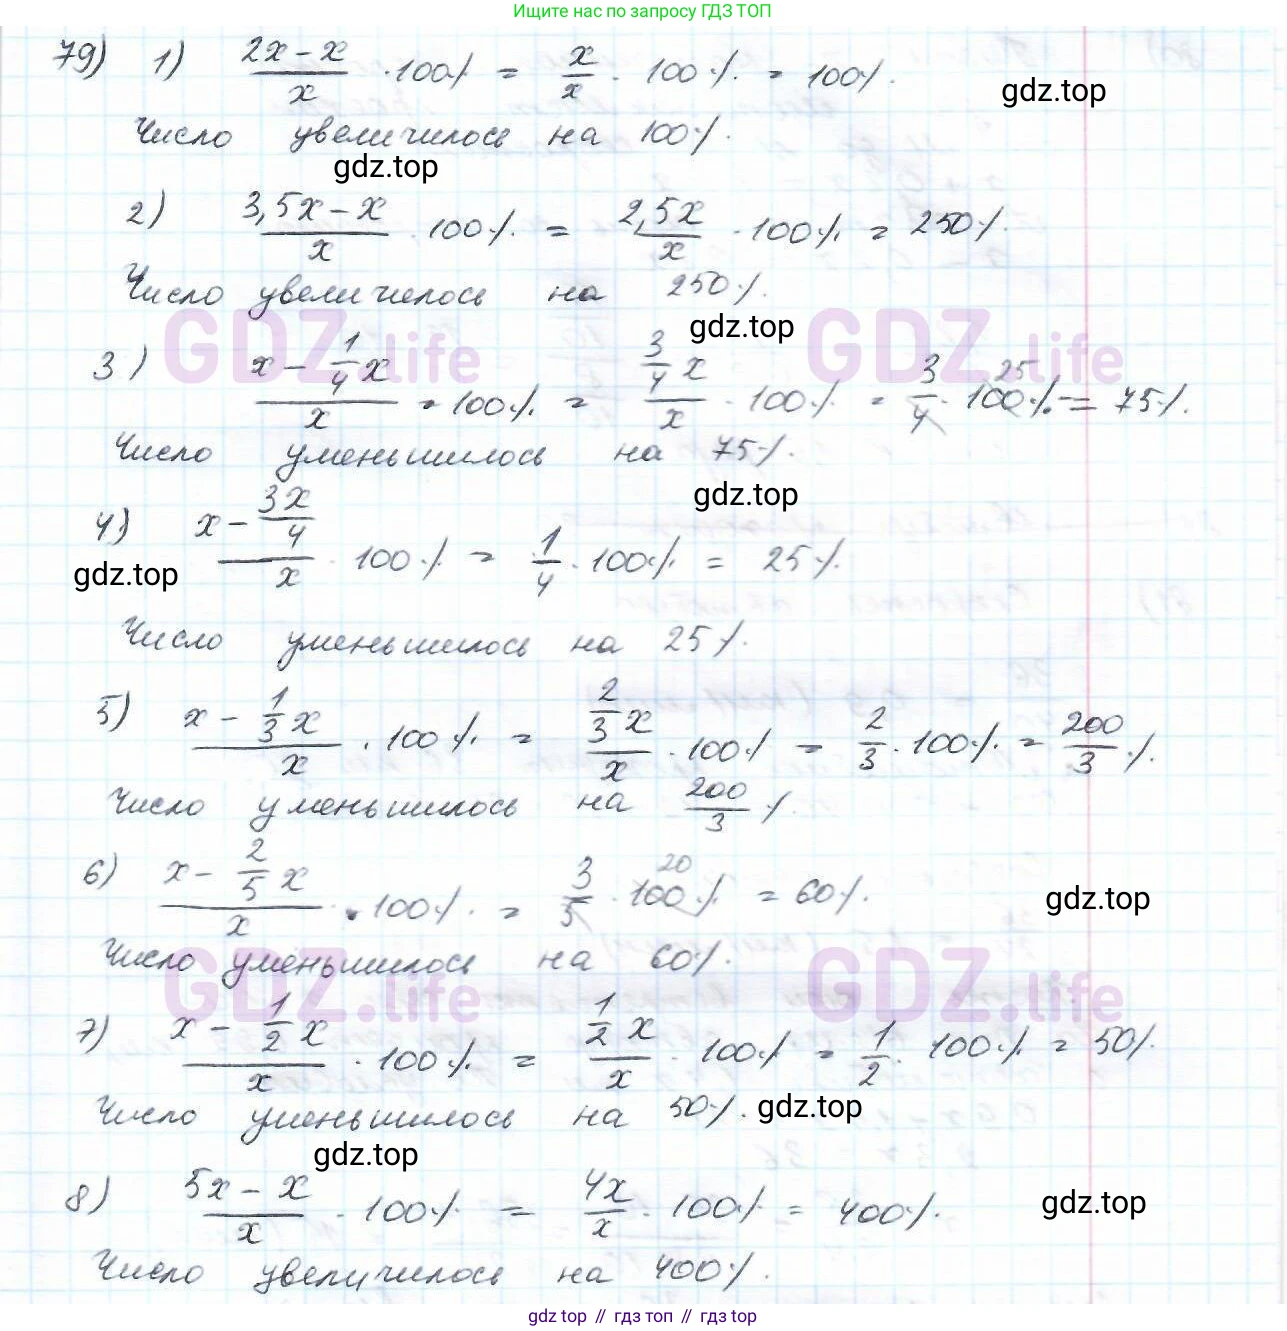 Ищите нас по запросу ГДЗ ТОП
79) 1) (2x-x)/x · 100% = x/x · 100% = 100%.
gdz.top
Число увеличилось на 100%.
gdz.top
2) (3,5x-x)/x · 100% = 2,5x/x · 100% = 250%.
Число увеличилось на 250%.
gdz.top
GDZ.life GDZ.life
3) (x - 1/4 x)/x · 100% = (3/4 x)/x · 100% = 3/4 · 100% = 75%.
25
Число уменьшилось на 75%.
gdz.top
4) (x - 3x/4)/x · 100% = 1/4 · 100% = 25%.
gdz.top
Число уменьшилось на 25%.
5) (x - 1/3 x)/x · 100% = (2/3 x)/x · 100% = 2/3 · 100% = 200/3 %.
Число уменьшилось на 200/3 %.
6) (x - 2/5 x)/x · 100% = 3/5 · 100% = 60%.
20
gdz.top
Число уменьшилось на 60%.
GDZ.life GDZ.life
7) (x - 1/2 x)/x · 100% = (1/2 x)/x · 100% = 1/2 · 100% = 50%.
Число уменьшилось на 50%.
gdz.top
gdz.top
8) (5x - x)/x · 100% = 4x/x · 100% = 400%.
gdz.top
Число увеличилось на 400%.
gdz top // гдз топ // гдз top